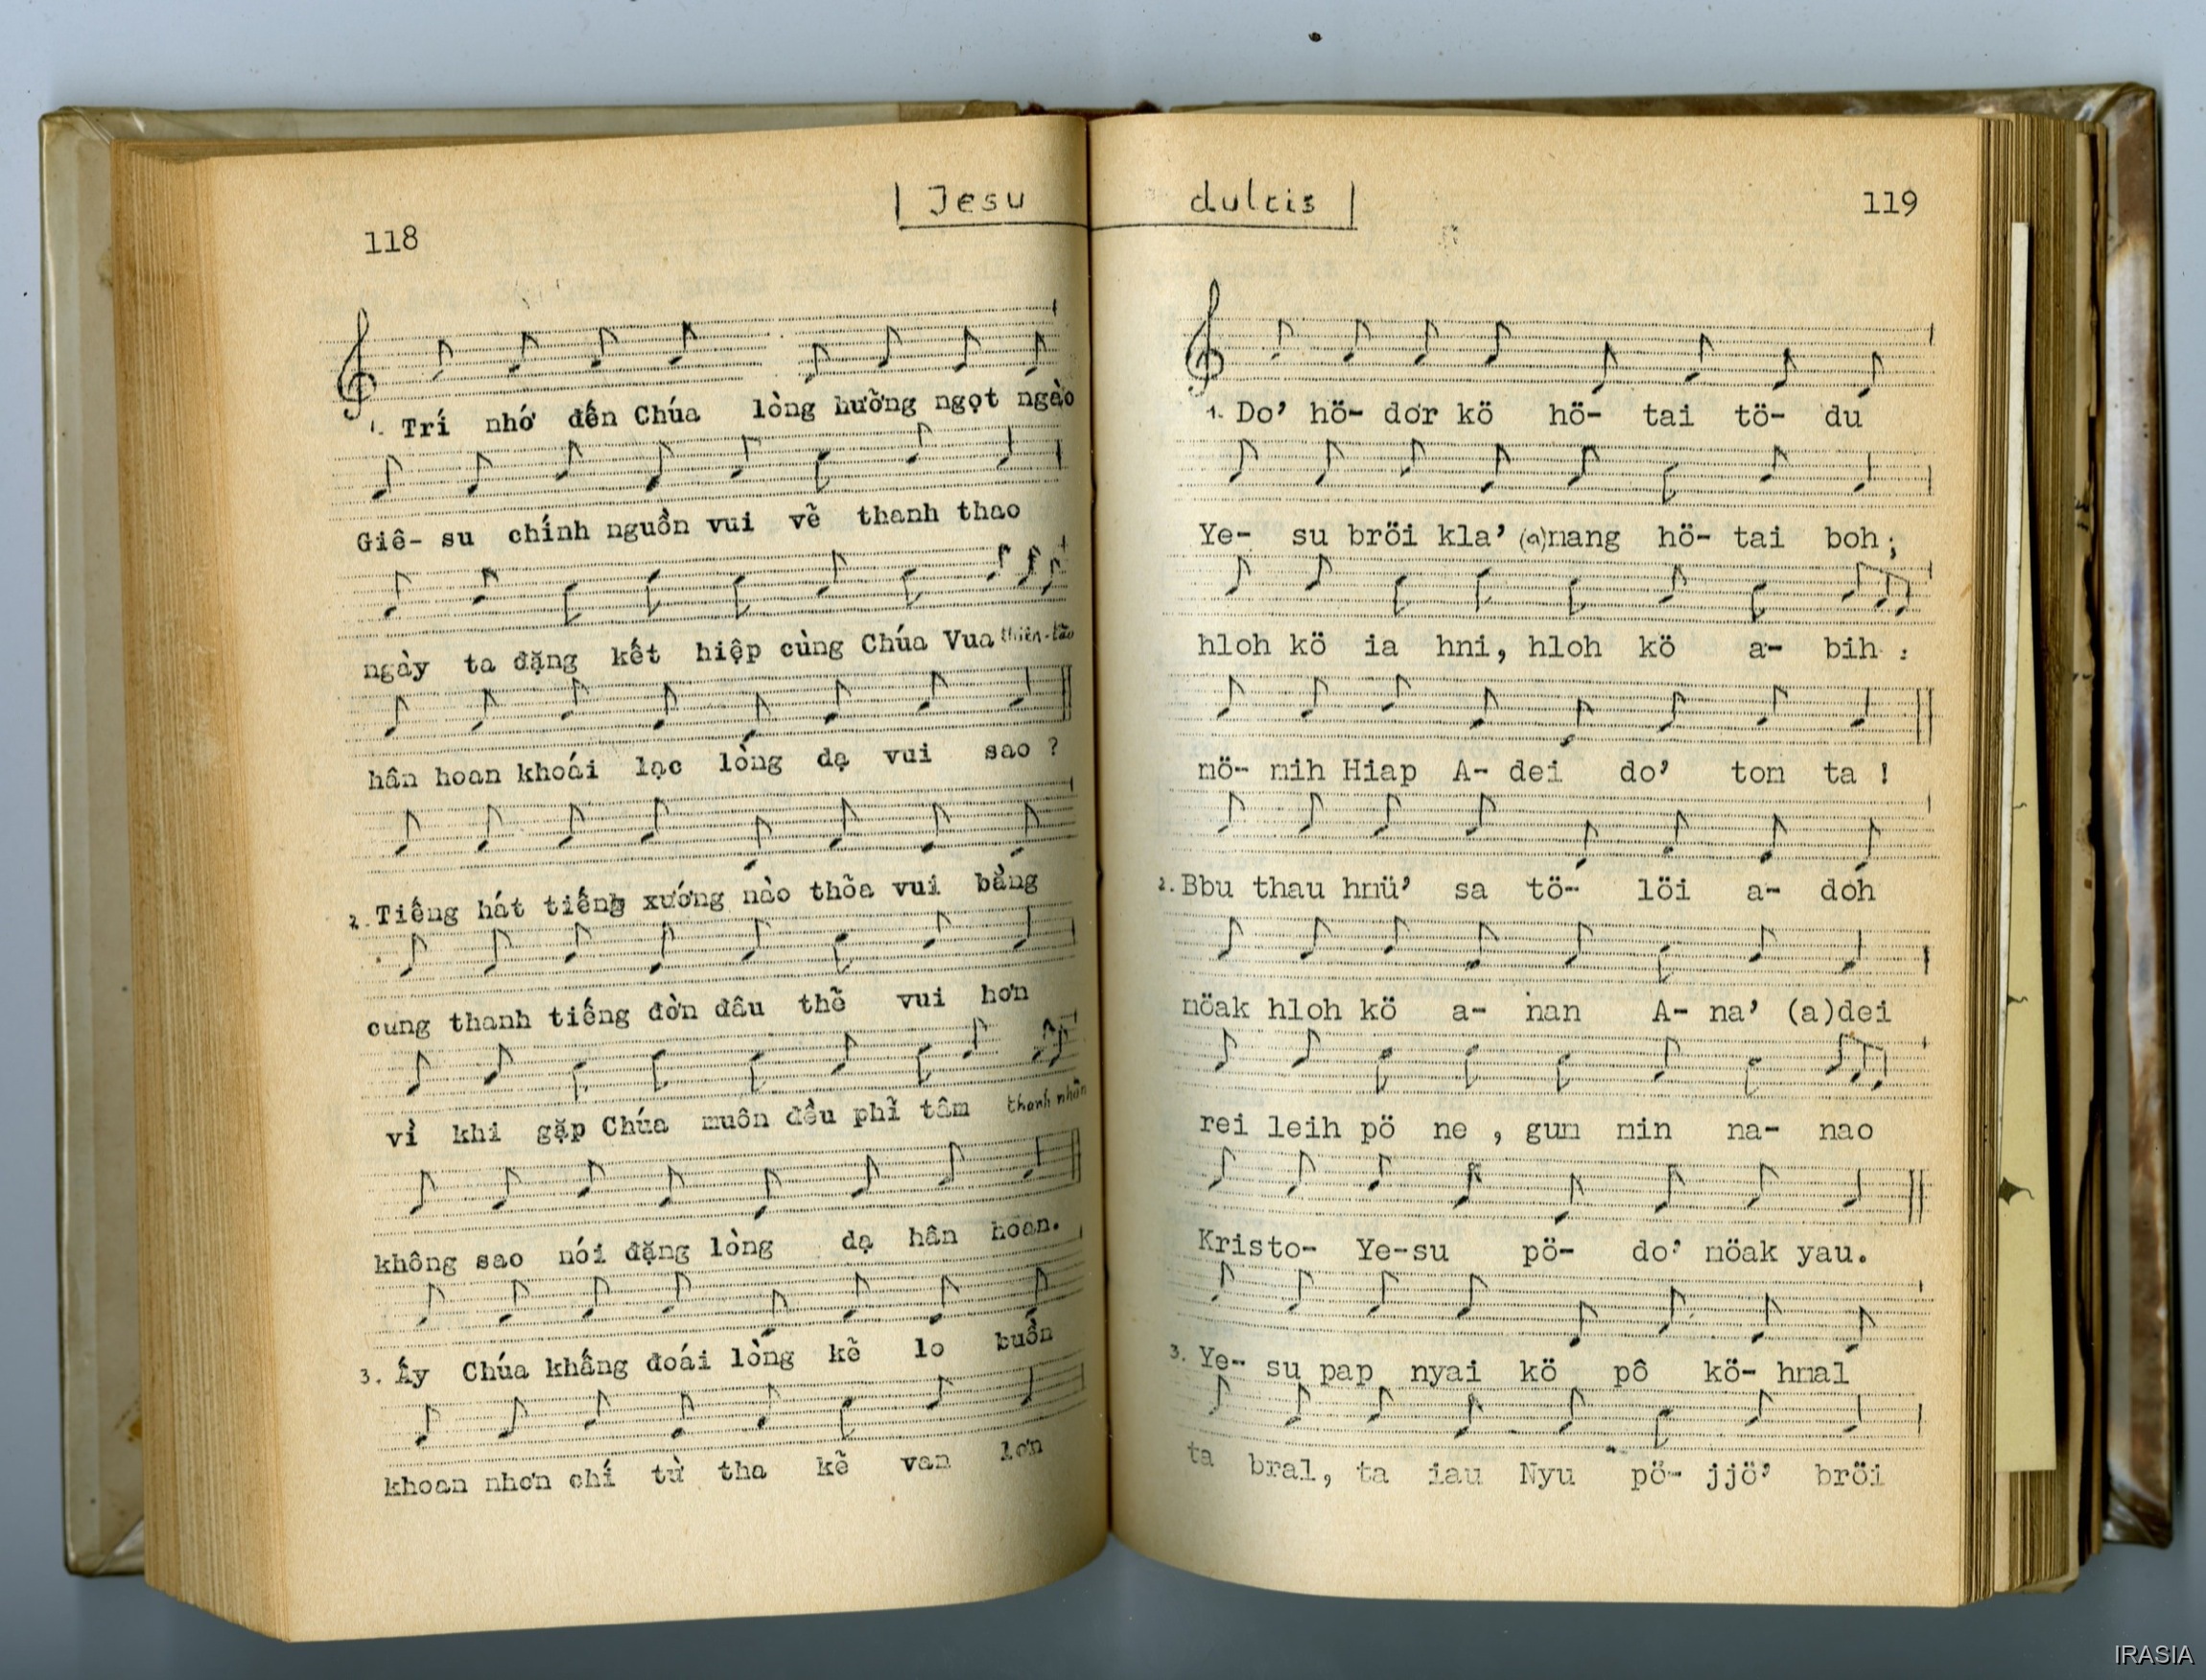 118
Jesu
1. Trí nhớ đến Chúa lòng hưởng ngọt ngào
Giê- su chính nguồn vui vẽ thanh thao
ngày ta đặng kết hiệp cùng Chúa Vua thiên-tào
hân hoan khoái lạc lòng dạ vui sao ?
2. Tiếng hát tiếng xướng nào thõa vui bằng
cung thanh tiếng đờn đâu thẽ vui hơn
vì khi gặp Chúa muôn đều phỉ tâm thanh nhàn
không sao nói đặng lòng dạ hân hoan.
3. Ấy Chúa khấng đoái lòng kẽ lo buồn
khoan nhơn chí từ tha kẽ van lơn
dulcis
119
1. Do’ hö- dơr kö hö- tai tö- du
Ye- su bröi kla’ (a)nang hö- tai boh ;
hloh kö ia hni, hloh kö a- bih :
mö- mih Hiap A- dei do’ tom ta !
2. Bbu thau hmü’ sa tö- löi a- doh
möak hloh kö a- nan A- na’ (a)dei
rei leih pö ne , gum min na- nao
Kristo- Ye-su pö- do’ möak yau.
3. Ye- su pap nyai kö pô kö- hmal
ta bral, ta iau Nyu pö- jjö’ bröi
IRASIA